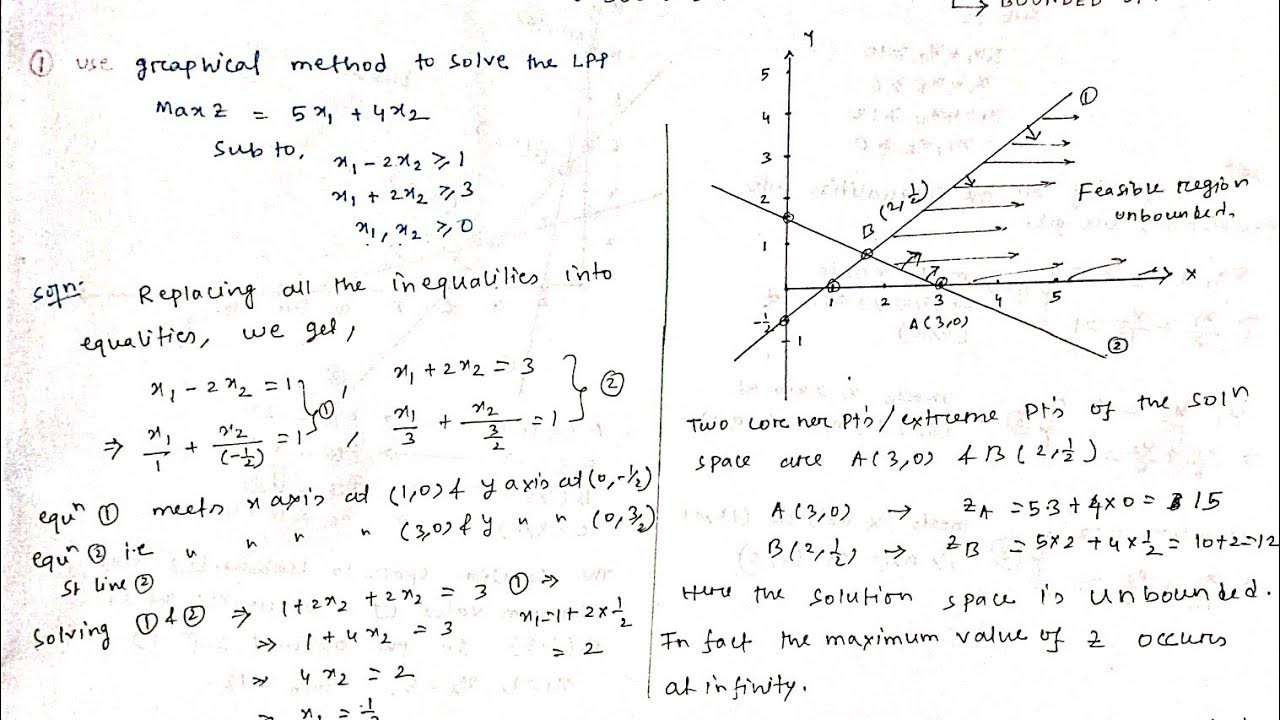 ① use graphical method to solve the LPP
Max Z = 5x₁ + 4x₂
Sub to, x₁ - 2x₂ ≥ 1
x₁ + 2x₂ ≥ 3
x₁, x₂ ≥ 0
Soln: Replacing all the inequalities into
equalities, we get,
x₁ - 2x₂ = 1 , x₁ + 2x₂ = 3
⇒ x₁/1 + x₂/(-1/2) = 1 } ① , x₁/3 + x₂/(3/2) = 1 } ②
equⁿ ① meets x axis at (1,0) & y axis at (0,-1/2)
equⁿ ② i.e " " " " (3,0) & y " " (0, 3/2)
St line ②
Solving ① & ② ⇒ 1 + 2x₂ + 2x₂ = 3
⇒ 1 + 4x₂ = 3
⇒ 4x₂ = 2
⇒ x₂ = 1/2
① ⇒
x₁ = 1 + 2 × 1/2
= 2
BOUNDED
Y
5
4
3
2
1
-1/2
1
1 2 3 4 5 X
A(3,0)
B (2, 1/2)
①
②
Feasible region
unbounded.
Two corner pt's / extreme pt's of the soln
space are A(3,0) & B(2, 1/2)
A(3,0) → Z_A = 5.3 + 4×0 = 15
B(2, 1/2) → Z_B = 5×2 + 4×1/2 = 10+2=12
Here the solution space is unbounded.
In fact the maximum value of Z occurs
at infinity.